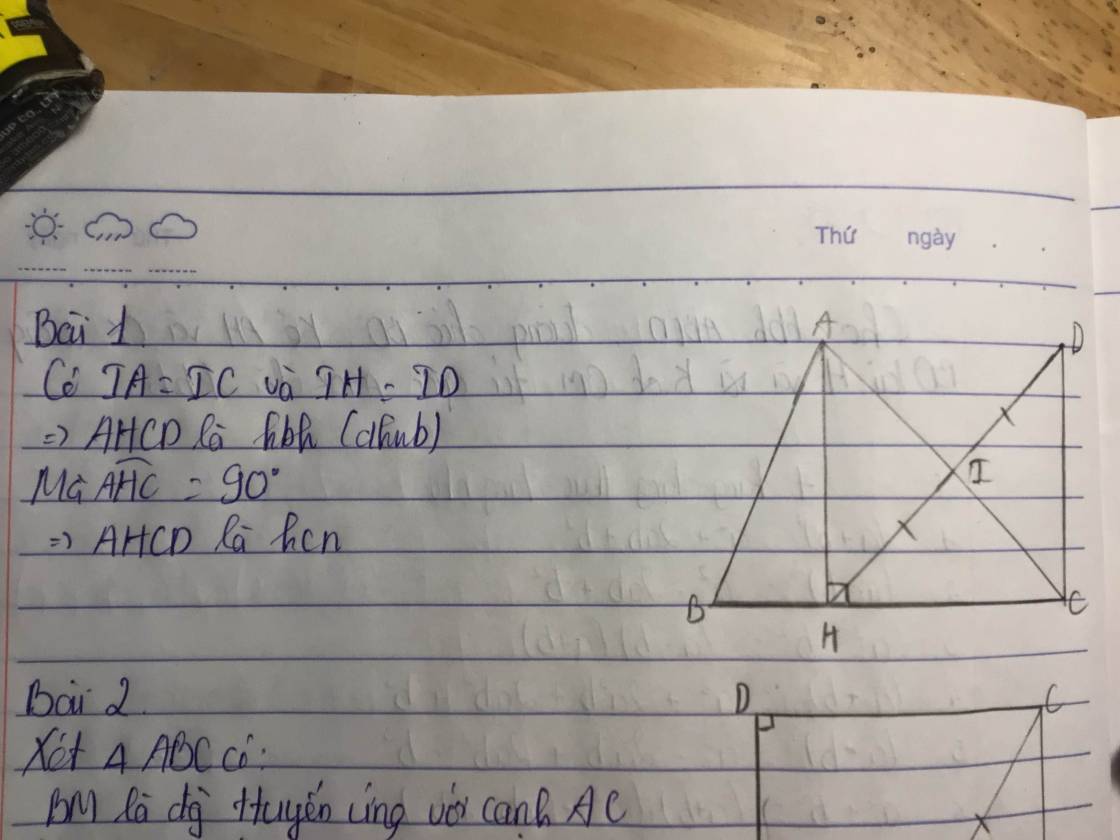 Thứ ngày
Bài 1
Có IA = IC và IH = ID
=> AHCD là hbh (dhnb)
Mà AHC = 90°
=> AHCD là hcn
A
D
I
B
H
C
Bài 2.
Xét Δ ABC có:
BM là đg
ứng với cạnh AC
D
C